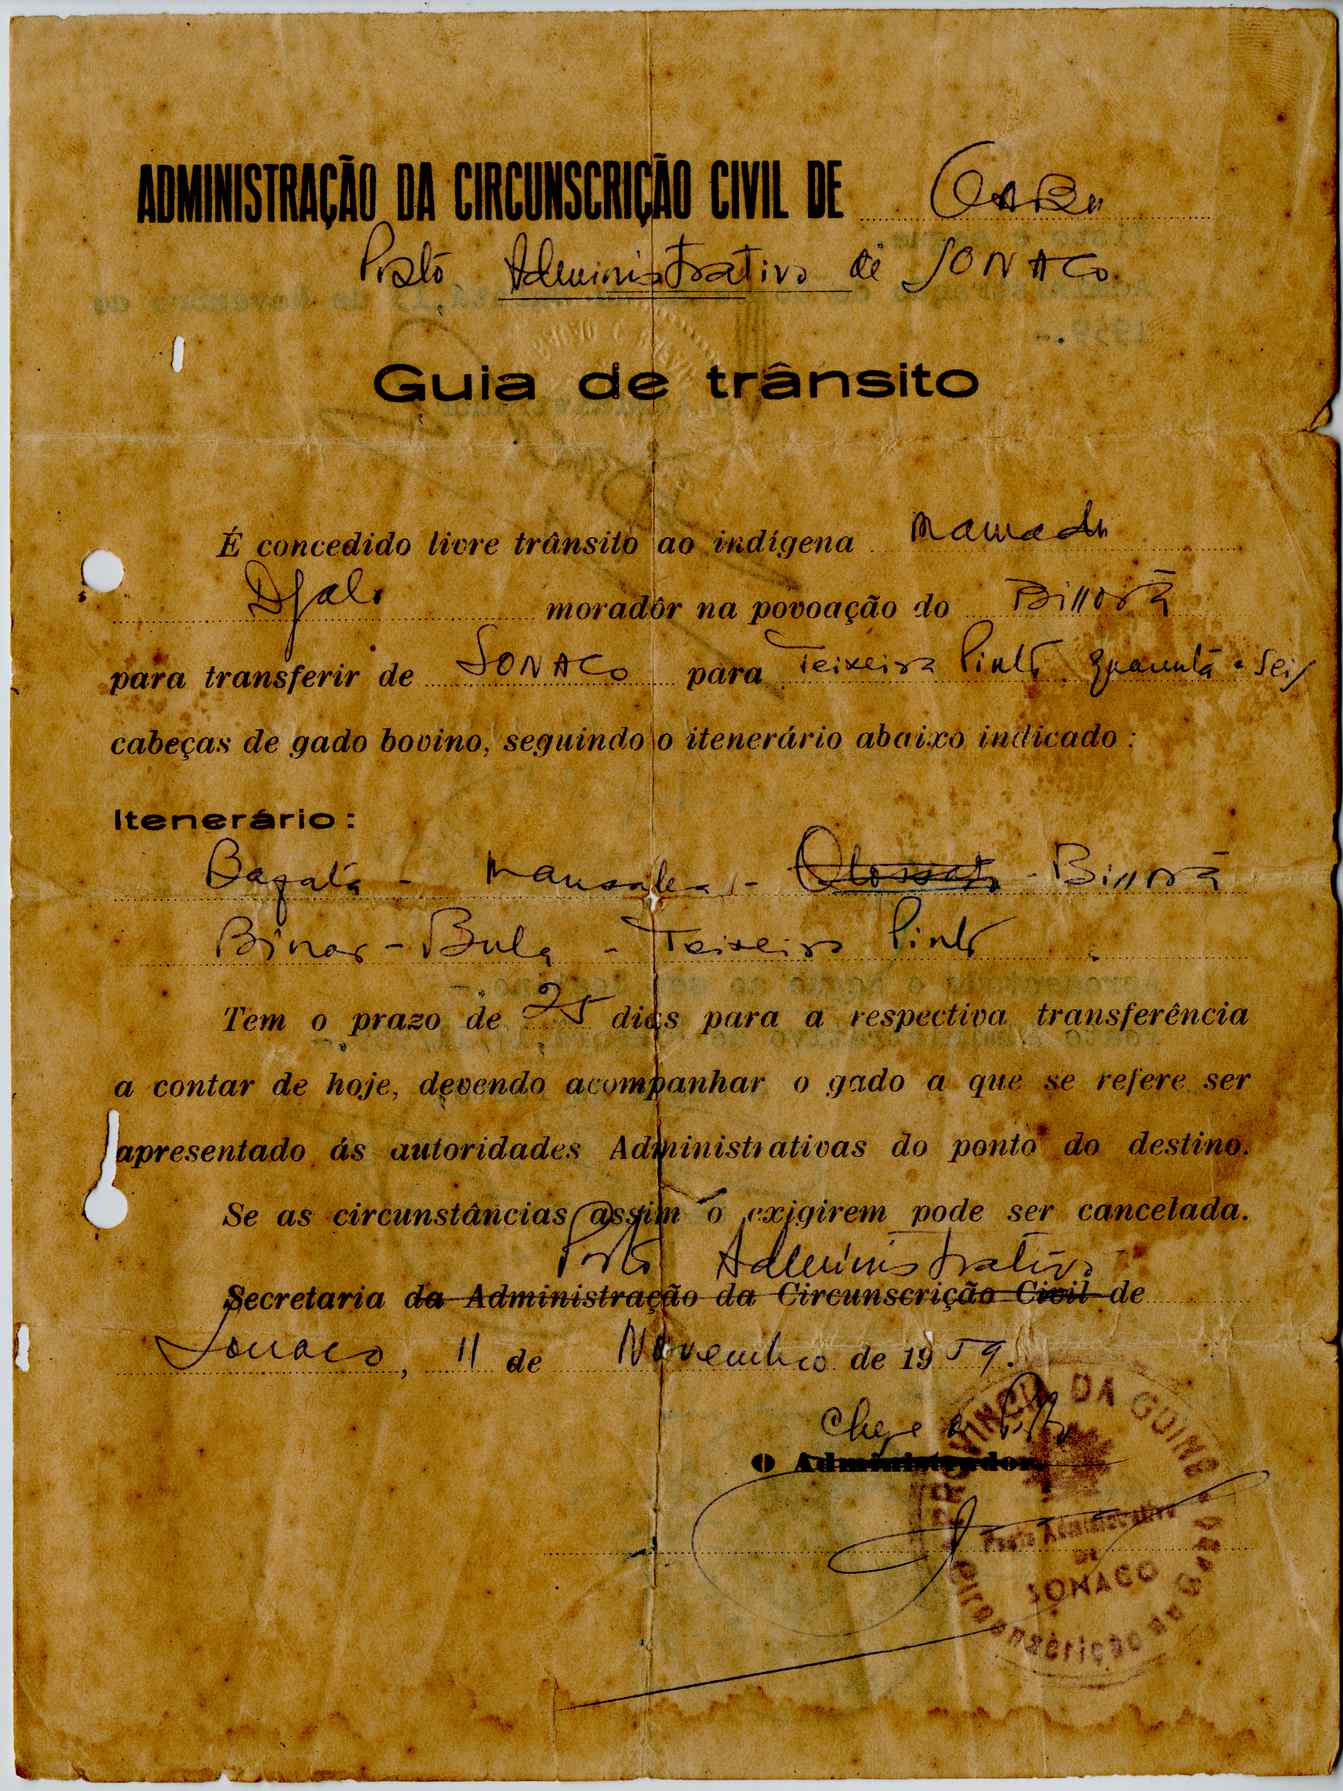 ADMINISTRAÇÃO DA CIRCUNSCRIÇÃO CIVIL DE GABU
Posto Administrativo de SONACO
Guia de trânsito
É concedido livre trânsito ao indígena Mamadu
Djaló moradôr na povoação do Bissorã
para transferir de SONACO para Teixeira Pinto quarenta e seis
cabeças de gado bovino, seguindo o itenerário abaixo indicado :
Itenerário :
Bafatá - Mansaba - Olossato - Bissorã
Binar - Bula - Teixeira Pinto
Tem o prazo de 25 dias para a respectiva transferência
a contar de hoje, devendo acompanhar o gado a que se refere ser
apresentado ás autoridades Administrativas do ponto do destino.
Se as circunstâncias assim o exigirem pode ser cancelada.
Posto Administrativo
Secretaria da Administração da Circunscrição Civil de
Sonaco, 11 de Novembro de 1959.
Chefe de Posto
O Administrador,
PROVINCIA DA GUINÉ
Posto Administrativo
DE
SONACO
Circunscrição de Gabú